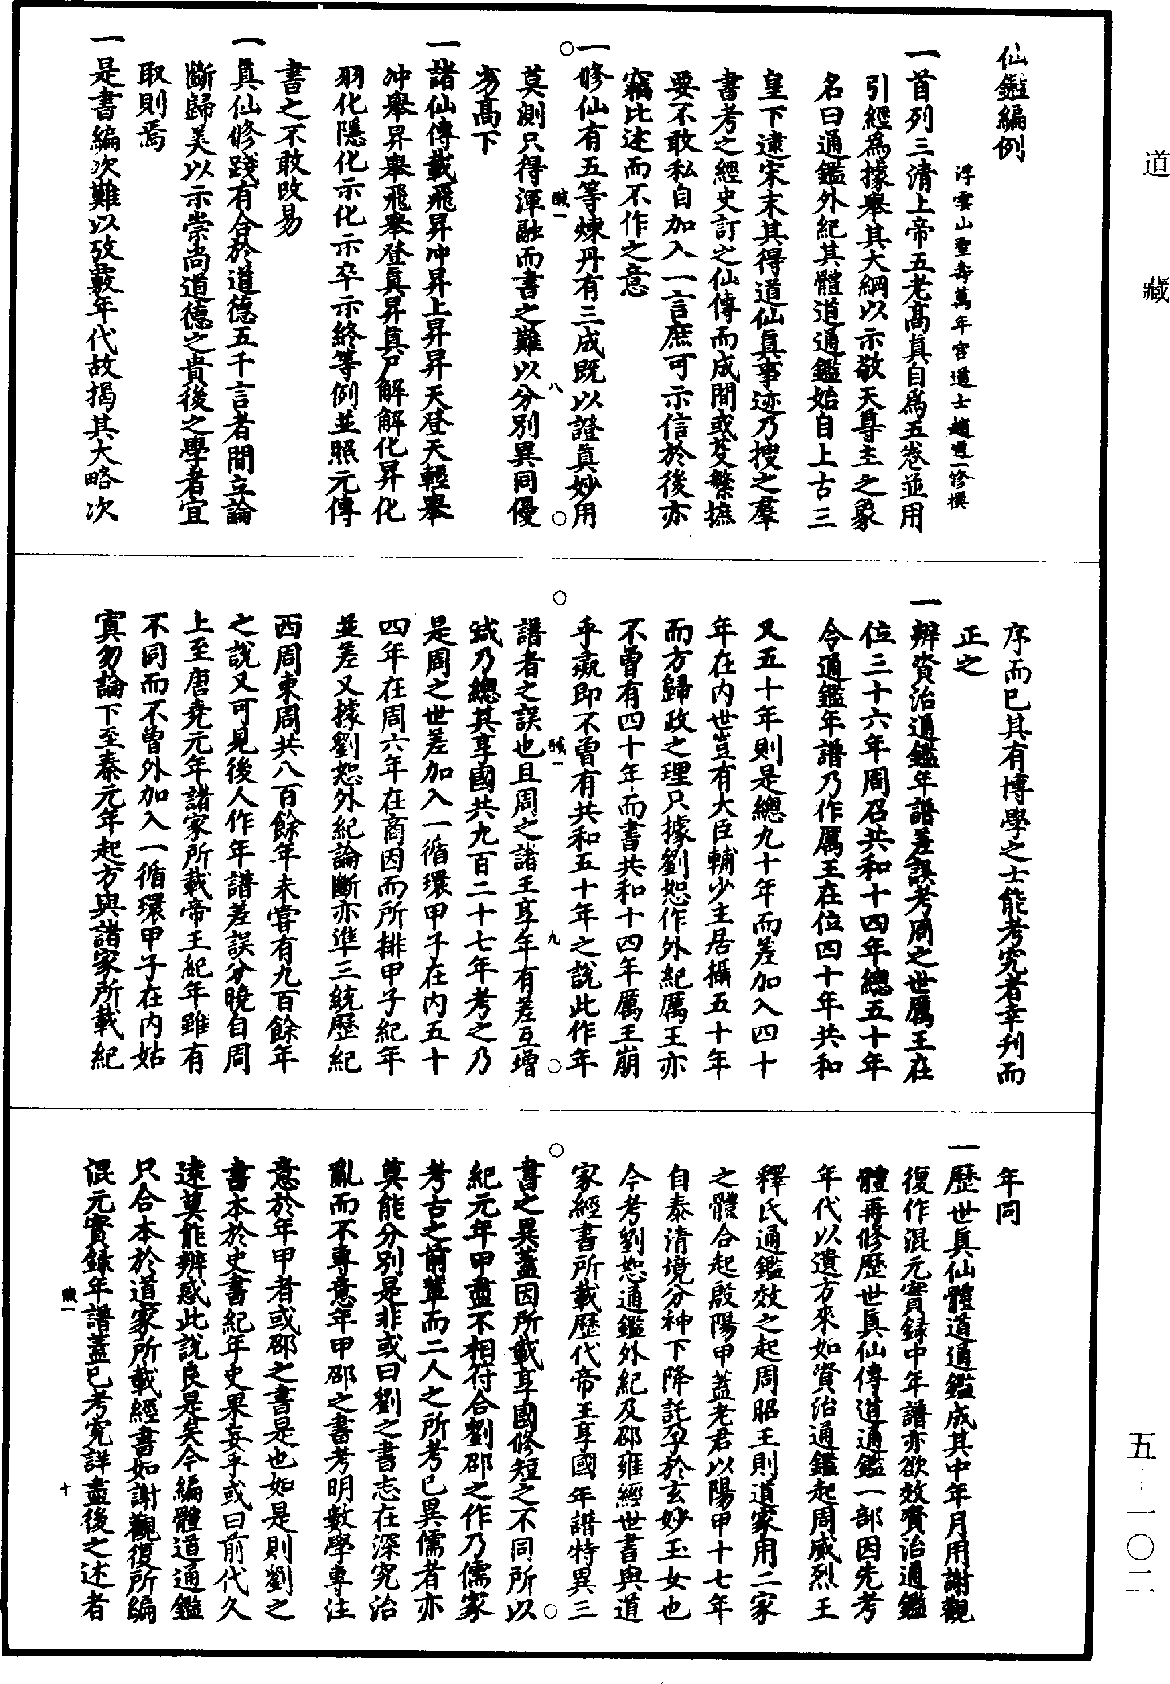 道藏
五·一〇二
仙鑑編例
浮雲山聖壽萬年宮道士趙道一修撰
一首列三清上帝五老高真自為五卷並用
引經為據舉其大綱以示敬天尊主之象
名曰通鑑外紀其體道通鑑始自上古三
皇下逮宋末其得道仙真事迹乃搜之群
書考之經史訂之仙傳而成間或芟繁摭
要不敢私自加入一言庶可示信於後亦
竊比述而不作之意
一修仙有五等煉丹有三成既以證真妙用
莫測只得渾融而書之難以分別異同優
劣高下
一諸仙傳載飛昇冲昇上昇昇天登天輕舉
冲舉昇舉飛舉登真昇真尸解解化昇化
羽化隱化示化示卒示終等例並照元傳
書之不敢改易
一真仙修踐有合於道德五千言者間立論
斷歸美以示崇尚道德之貴後之學者宜
取則焉
一是書編次難以攷覈年代故揭其大略次
序而已其有博學之士能考究者幸刊而
正之
一辨資治通鑑年譜差誤考周之世厲王在
位三十六年周召共和十四年總五十年
今通鑑年譜乃作厲王在位四十年共和
又五十年則是總九十年而差加入四十
年在內世豈有大臣輔少主居攝五十年
而方歸政之理只據劉恕作外紀厲王亦
不曾有四十年而書共和十四年厲王崩
乎彘即不曾有共和五十年之說此作年
譜者之誤也且周之諸王享年有差互增
減乃總其享國共九百二十七年考之乃
是周之世差加入一循環甲子在內五十
四年在周六年在商因而所排甲子紀年
並差又據劉恕外紀論斷亦準三統歷紀
西周東周共八百餘年未嘗有九百餘年
之說又可見後人作年譜差誤分曉自周
上至唐堯元年諸家所載帝王紀年雖有
不同而不曾外加入一循環甲子在內姑
寘勿論下至秦元年起方與諸家所載紀
年同
一歷世真仙體道通鑑成其中年月用謝觀
復作混元實錄中年譜亦欲效資治通鑑
體再修歷世真仙傳道通鑑一部因先考
年代以遺方來如資治通鑑起周威烈王
釋氏通鑑效之起周昭王則道家用二家
之體合起殷陽甲蓋老君以陽甲十七年
自泰清境分神下降託孕於玄妙玉女也
今考劉恕通鑑外紀及邵雍經世書與道
家經書所載歷代帝王享國年譜特異三
書之異蓋因所載享國修短之不同所以
紀元年甲盡不相符合劉邵之作乃儒家
考古之前輩而二人之所考已異儒者亦
莫能分別是非或曰劉之書志在深究治
亂而不專意年甲邵之書考明數學專注
意於年甲者或邵之書是也如是則劉之
書本於史書紀年史果妄乎或曰前代久
遠莫能辨惑此說良是矣今編體道通鑑
只合本於道家所載經書如謝觀復所編
混元實錄年譜蓋已考究詳盡後之述者